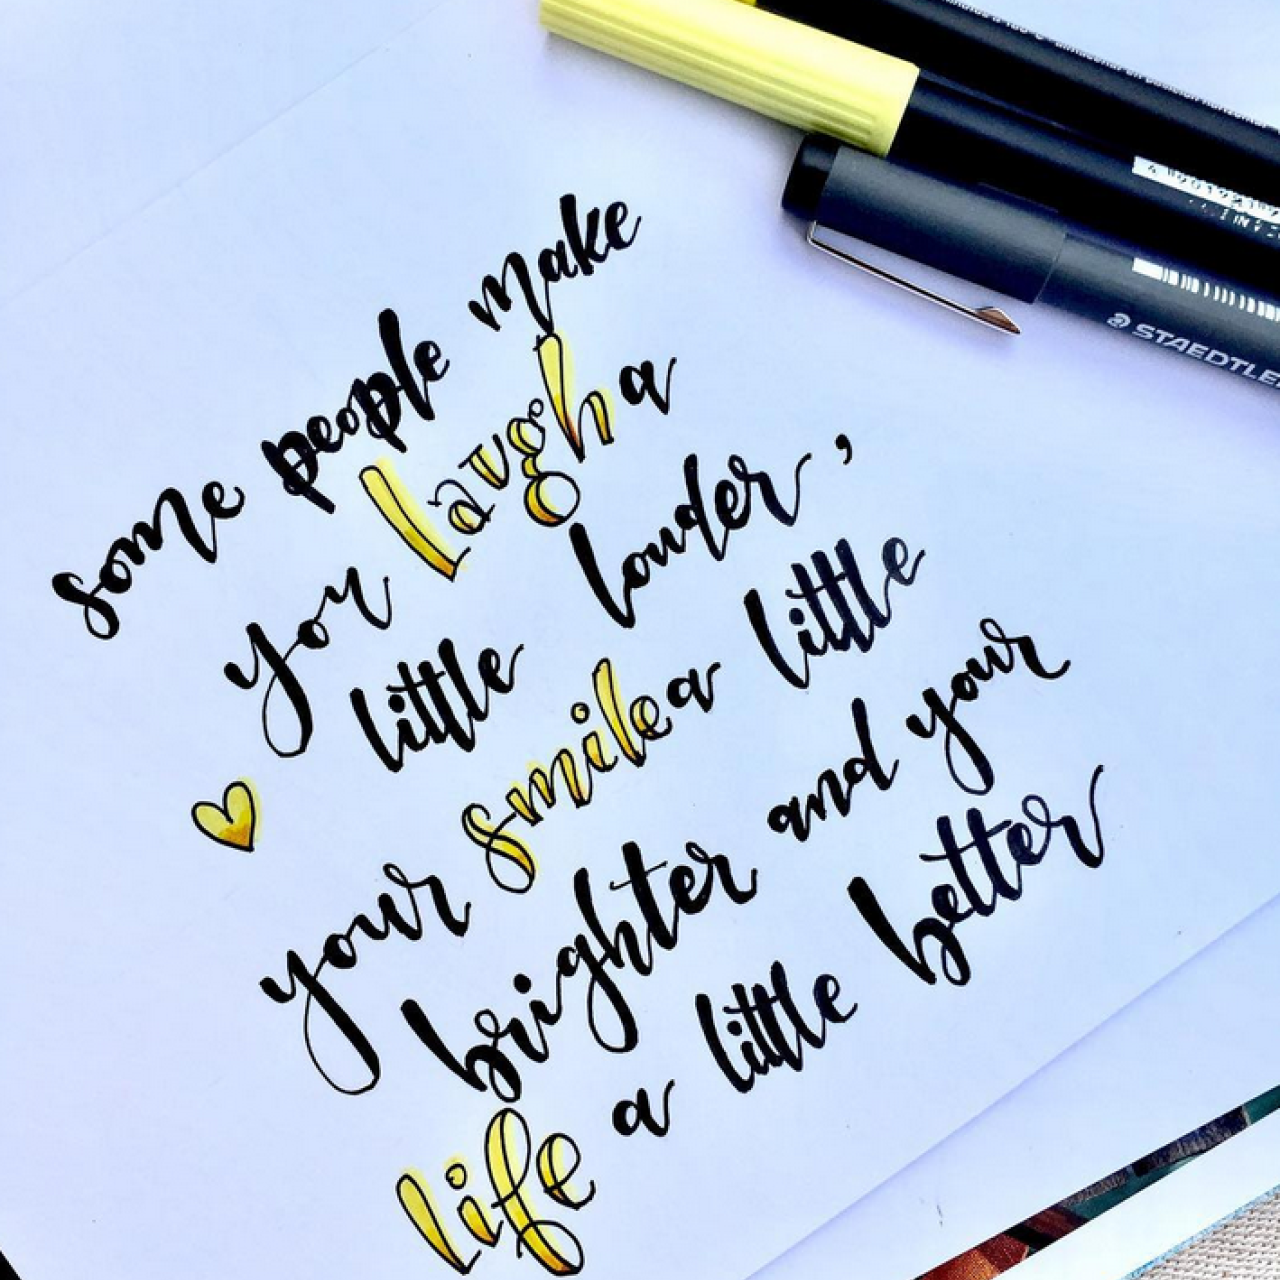 some people make
you laugh a
little louder,
your smile a little
brighter and your
life a little better
STAEDTLER